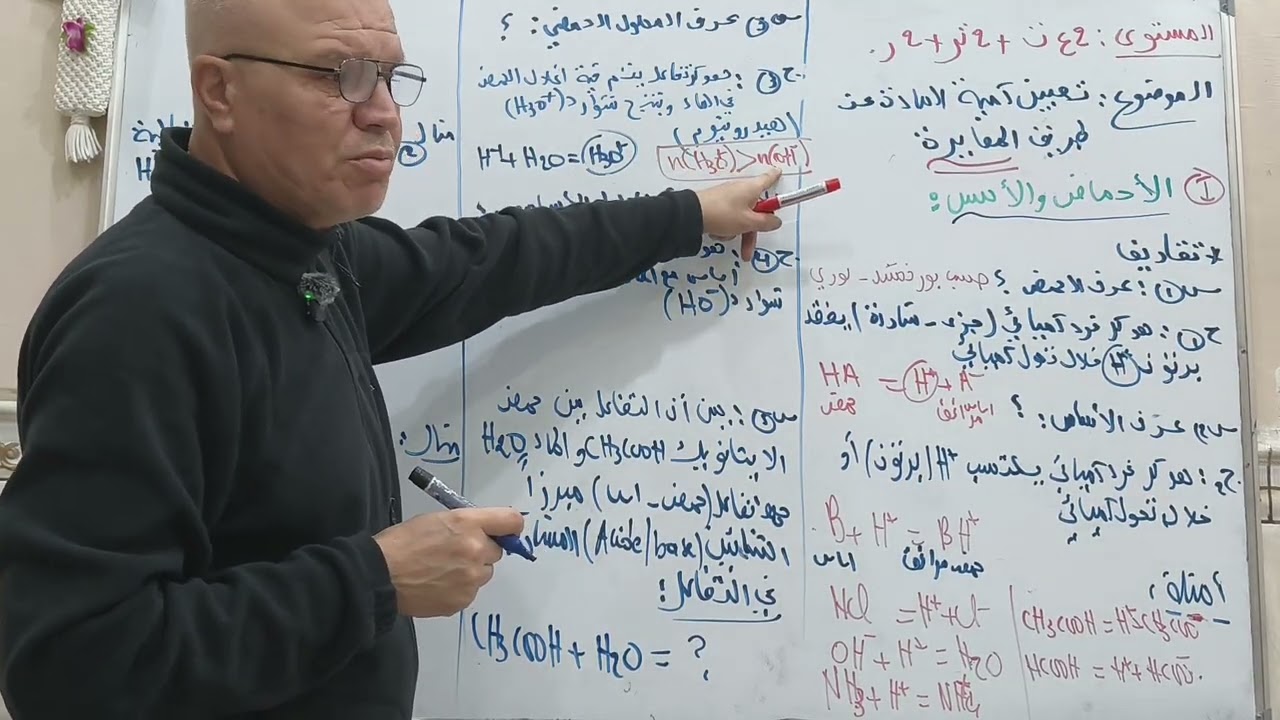 المستوى: 2ع ت + 2تر + 2ر.
الموضوع: تعيين كمية المادة عن
طريق المعايرة
I الأحماض والأسس:
* تعاريف
س1: عرف الحمض؟ حسب بورنشتد - لوري
ج1: هو كل فرد كيميائي (جزيء - شاردة) يفقد
برتون H⁺ خلال تحول كيميائي
HA = H⁺ + A⁻
حمض اساس مرافق
س2: عرف الأساس: ؟
ج2: هو كل فرد كيميائي يكتسب H⁺ (برتون) أو
خلال تحول كيميائي
B + H⁺ = BH⁺
اساس حمض مرافق
أمثلة:
HCl = H⁺ + Cl⁻
OH⁻ + H⁺ = H2O
NH3 + H⁺ = NH4⁺
CH3COOH = H⁺ + CH3COO⁻
HCOOH = H⁺ + HCOO⁻.
س3 عرف المحلول الحمضي: ؟
ج3: هو كل تفاعل يتم فيه انحلال الحمض
في الماء وينتج شوارد (H3O⁺)
(هيدرونيوم)
H⁺ + H2O = H3O⁺
n(H3O⁺) > n(OH⁻)
ج4: هو
أساس مع
شوارد (HO⁻)
س5: بين أن التفاعل بين حمض
الايثانويك CH3COOH و الماء H2O
هو تفاعل (حمض - اساس) مبرزا
الثنائيات (Acide/base)
في التفاعل:
CH3COOH + H2O = ?
مثال 2
مثال: